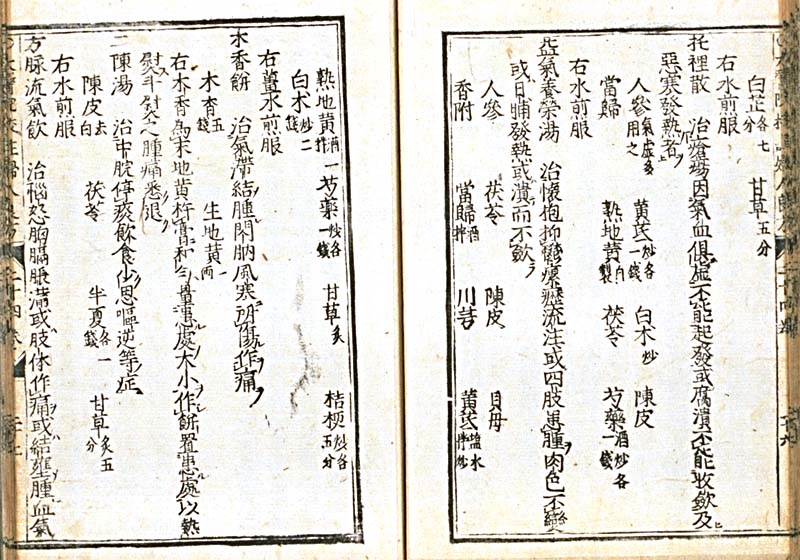 白芷各七分 甘草五分
右水煎服
托裡散 治瘡瘍因氣血俱虛不能起發或腐潰不能收斂及
惡寒發熱者
人參氣虛多用之 黃芪炒各一錢 白朮炒 陳皮
當歸 熟地黃自製 茯苓 芍藥酒炒各一錢
右水煎服
益氣養榮湯 治懷抱抑鬱瘰癧流注或四肢患腫肉色不變
或日晡發熱或潰而不斂
人參 茯苓 陳皮 貝母
香附 當歸酒拌 川芎 黃芪鹽水拌炒
熟地黃酒拌 一芍藥炒各一錢 甘草炙 桔梗炒各五分
白朮炒二錢
右薑水煎服
木香餅 治氣滯結腫閃肭風寒所傷作痛
木香五錢 生地黃一兩
右木香為末地黃杵膏和勻量患處大小作餅置患處以熱
熨斗熨之腫痛悉退
二陳湯 治中脘停痰飲食少思嘔逆等症
陳皮去白 茯苓 半夏各一錢 甘草炙五分
右水煎服
方脉流氣飲 治惱怒胸膈脹滿或肢体作痛或結壅腫血氣